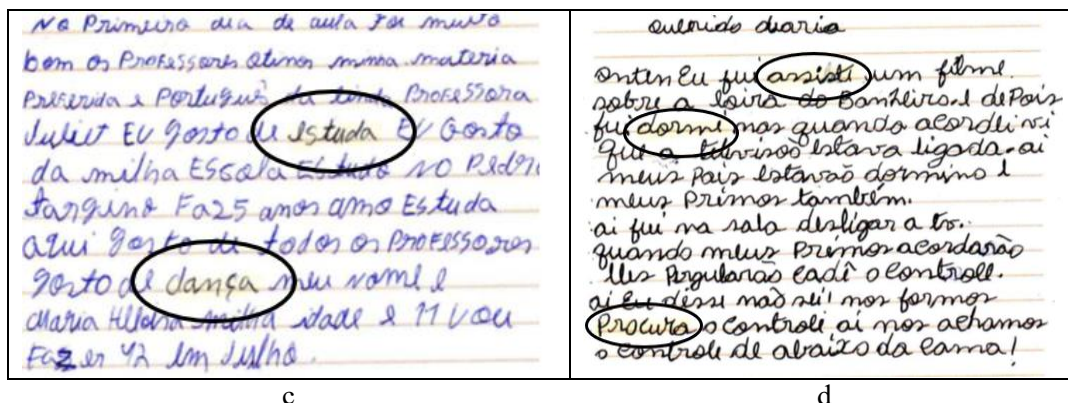 No Primeiro dia de aula Foi muito
bom os Professores otimos minha materia
Preferida e Português da linda Professora
Juliet EU gosto de estuda EU Gosto
da milha ESSola Estudo NO Pedro
Targino Faz5 anos amo Estuda
aqui gosto de todos os Professores
gosto de dança meu nome e
Maria Heloisa milha idade e 11 vou
Fazer 12 em Julho.
c
querido diario
onten Eu fui assisti um filme.
sobre a loira do Banheiro.e dePois
fui dormi mas quando acordei vi
que a televisoõ estava ligada. ai
meus Pais estavaõ dormino e
meus Primos também.
ai fui na sala desligar a tv.
quando meus Primos acordaraõ
eles Perguларaõ cadê o controle.
ai Eu desse naõ sei! nos formos
Procura o controle ai nos achamos
o controle de abaixo da cama!
d